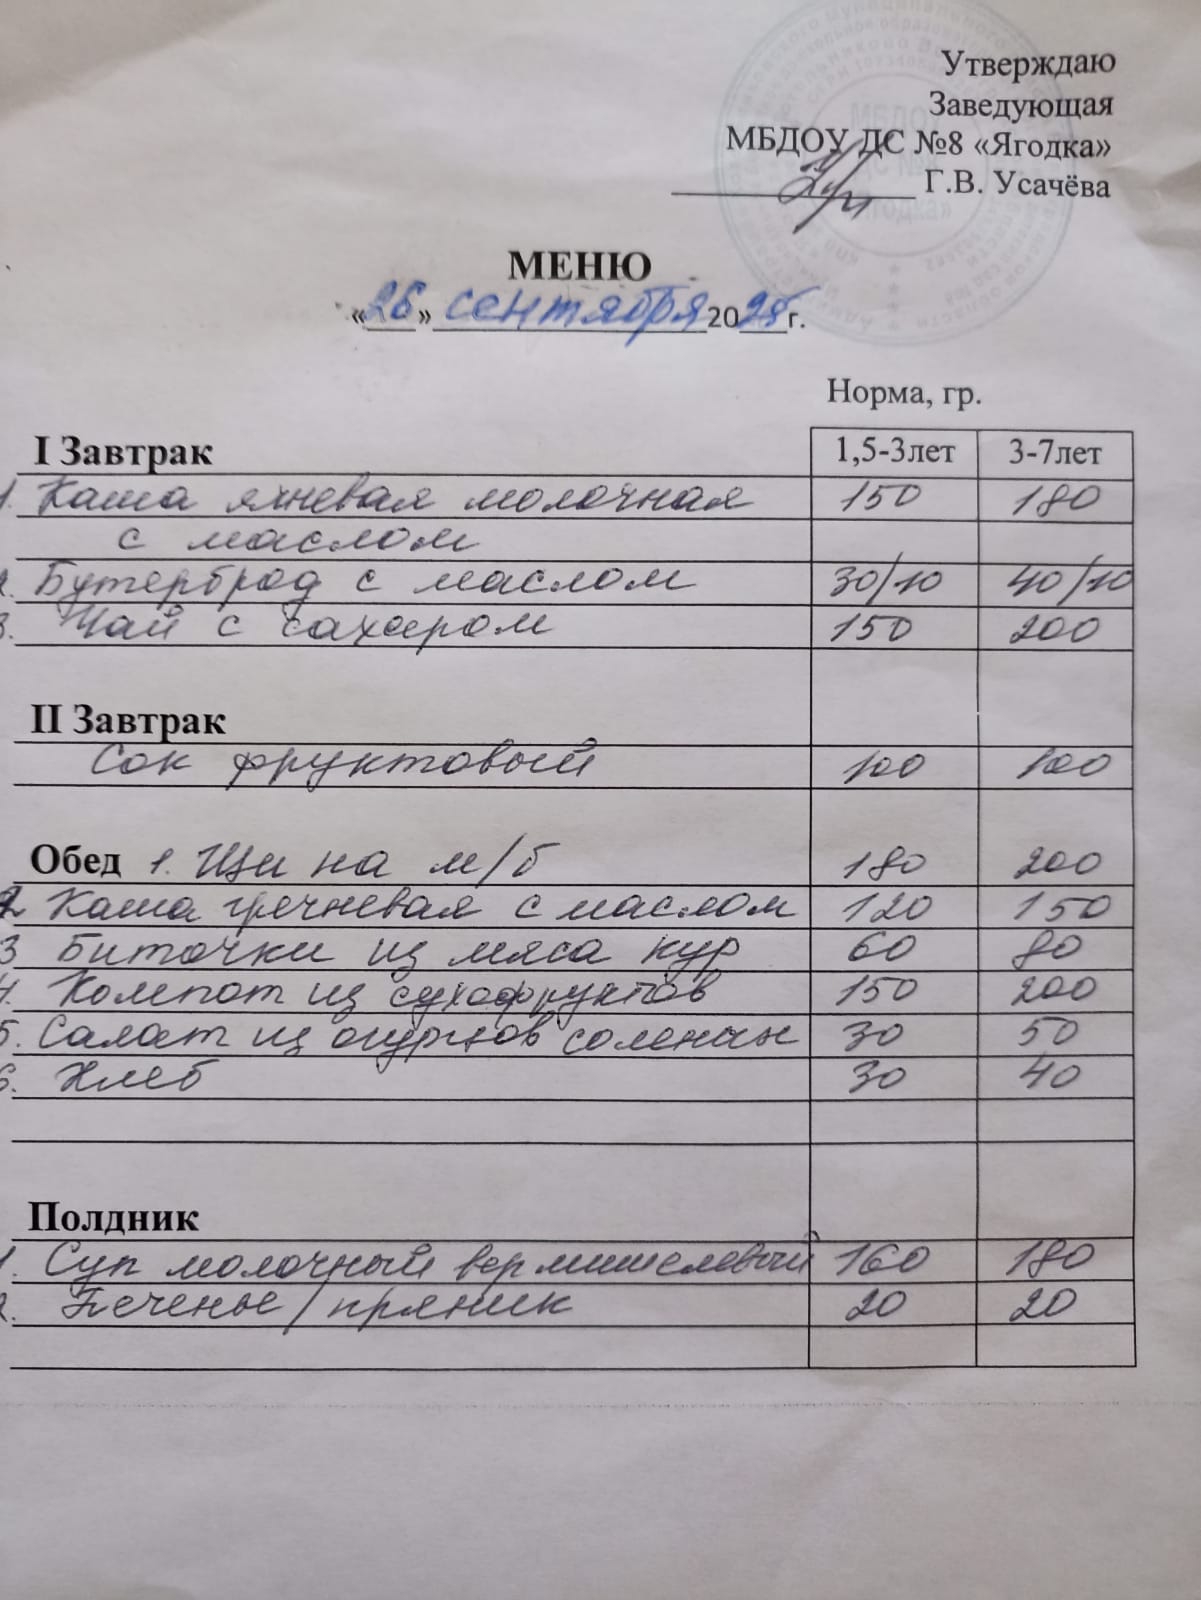 Утверждаю
Заведующая
МБДОУ ДС №8 «Ягодка»
Г.В. Усачёва
МЕНЮ
«26» сентября 2025 г.
Норма, гр.
I Завтрак 1,5-3лет 3-7лет
1. Каша ячневая молочная 150 180
с маслом
2. Бутерброд с маслом 30/10 40/10
3. Чай с сахаром 150 200
II Завтрак
Сок фруктовый 100 100
Обед 1. Щи на м/б 180 200
2 Каша гречневая с маслом 120 150
3 Биточки из мяса кур 60 80
4. Компот из сухофруктов 150 200
5. Салат из огурцов солены 30 50
6. Хлеб 30 40
Полдник
1. Суп молочный вермишелевый 160 180
2. Печенье/пряник 20 20